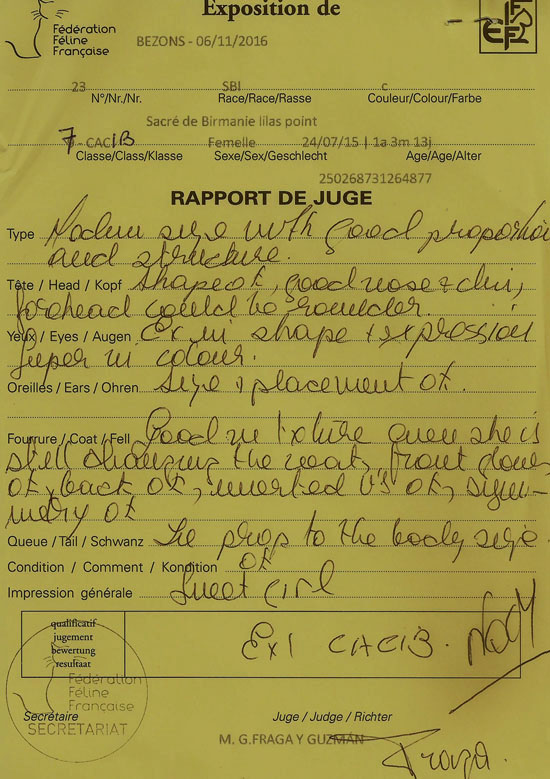 Exposition de
Fédération
Féline
Française
BEZONS - 06/11/2016
23 SBI c
N°/Nr./Nr. Race/Race/Rasse Couleur/Colour/Farbe
Sacré de Birmanie lilas point
7 - CACIB Femelle 24/07/15 | 1a 3m 13j
Classe/Class/Klasse Sexe/Sex/Geschlecht Age/Age/Alter
250268731264877
RAPPORT DE JUGE
Type size with good proportion
and structure.
Tête / Head / Kopf shape ok, good nose & chin,
forehead could be rounder.
Yeux / Eyes / Augen Ex in shape + expression
super in colour.
Oreilles / Ears / Ohren size & placement ok.
Fourrure / Coat / Fell Good in texture she is
still changing the coat, front gloves
ok, back ok, inverted V's ok, symm-
etry ok
Queue / Tail / Schwanz In prop to the body size.
Condition / Comment / Kondition ok
Impression générale Sweet girl
qualificatif
jugement
bewertung
resultaat
Ex1 CACIB.
Fédération
Féline
Française
SECRETARIAT
Secrétaire Juge / Judge / Richter
M. G.FRAGA Y GUZMAN
Fraga.